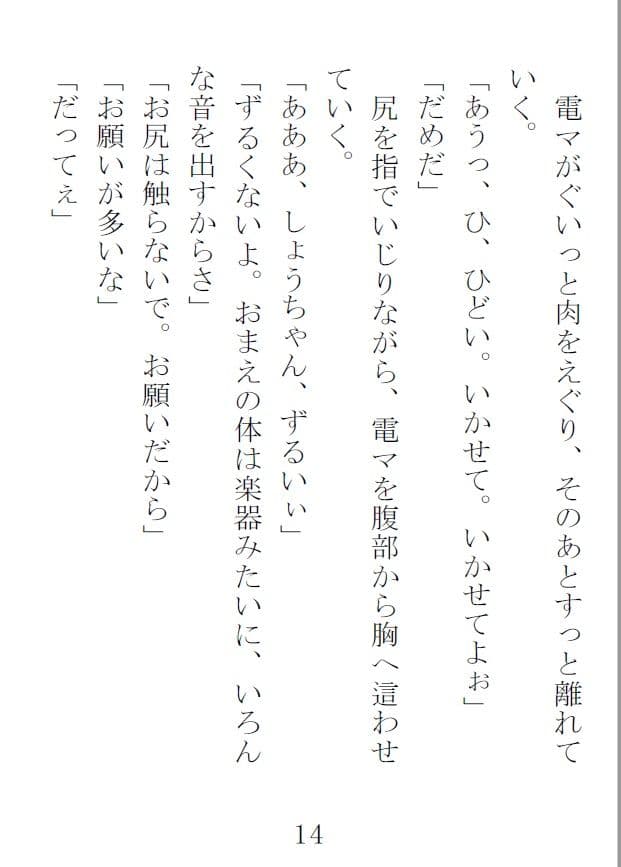 電マがぐいっと肉をえぐり、そのあとすっと離れて
いく。
「あうっ、ひ、ひどい。いかせて。いかせてよぉ」
「だめだ」
尻を指でいじりながら、電マを腹部から胸へ這わせ
ていく。
「あああ、しょうちゃん、ずるいぃ」
「ずるくないよ。おまえの体は楽器みたいに、いろん
な音を出すからさ」
「お尻は触らないで。お願いだから」
「お願いが多いな」
「だってぇ」
14